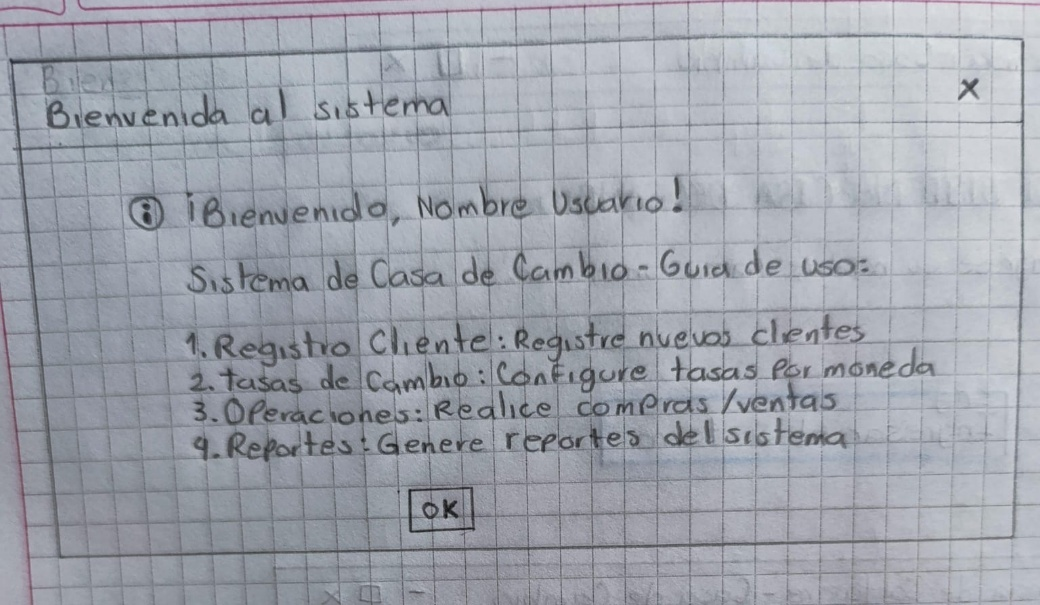 Bienvenida al sistema X
i ¡Bienvenido, Nombre Usuario!
Sistema de Casa de Cambio - Guia de uso:
1. Registro Cliente: Registre nuevos clientes
2. tasas de Cambio: Configure tasas por moneda
3. Operaciones: Realice compras/ventas
4. Reportes: Genere reportes del sistema
OK